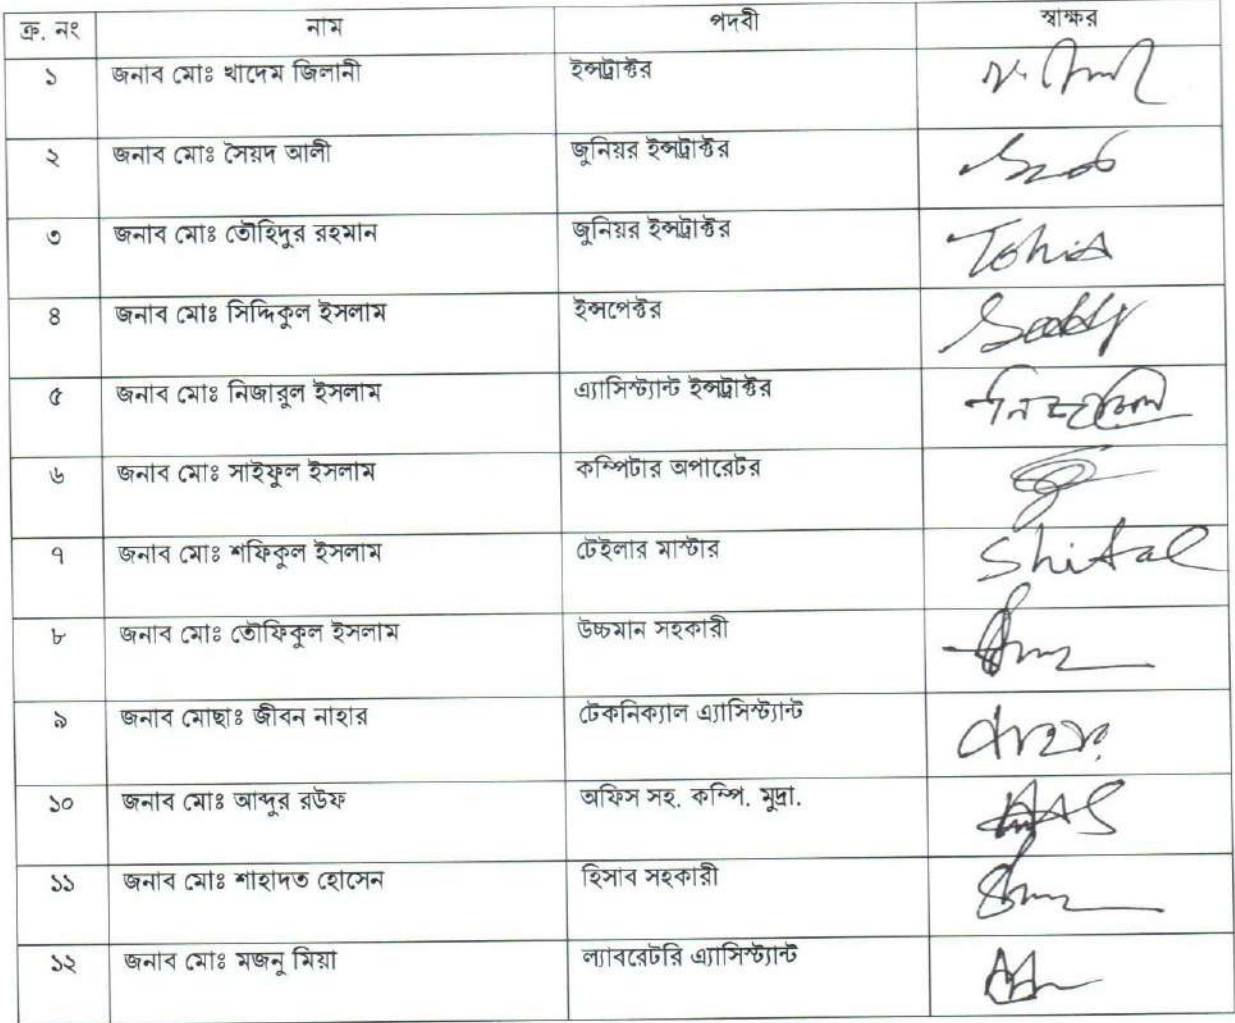 ক্র. নং নাম পদবী স্বাক্ষর
১ জনাব মোঃ খাদেম জিলানী ইন্সট্রাক্টর
২ জনাব মোঃ সৈয়দ আলী জুনিয়র ইন্সট্রাক্টর
৩ জনাব মোঃ তৌহিদুর রহমান জুনিয়র ইন্সট্রাক্টর Tohid
৪ জনাব মোঃ সিদ্দিকুল ইসলাম ইন্সপেক্টর
৫ জনাব মোঃ নিজারুল ইসলাম এ্যাসিস্ট্যান্ট ইন্সট্রাক্টর
৬ জনাব মোঃ সাইফুল ইসলাম কম্পিটার অপারেটর
৭ জনাব মোঃ শফিকুল ইসলাম টেইলার মাস্টার
৮ জনাব মোঃ তৌফিকুল ইসলাম উচ্চমান সহকারী
৯ জনাব মোছাঃ জীবন নাহার টেকনিক্যাল এ্যাসিস্ট্যান্ট
১০ জনাব মোঃ আব্দুর রউফ অফিস সহ. কম্পি. মুদ্রা.
১১ জনাব মোঃ শাহাদত হোসেন হিসাব সহকারী
১২ জনাব মোঃ মজনু মিয়া ল্যাবরেটরি এ্যাসিস্ট্যান্ট